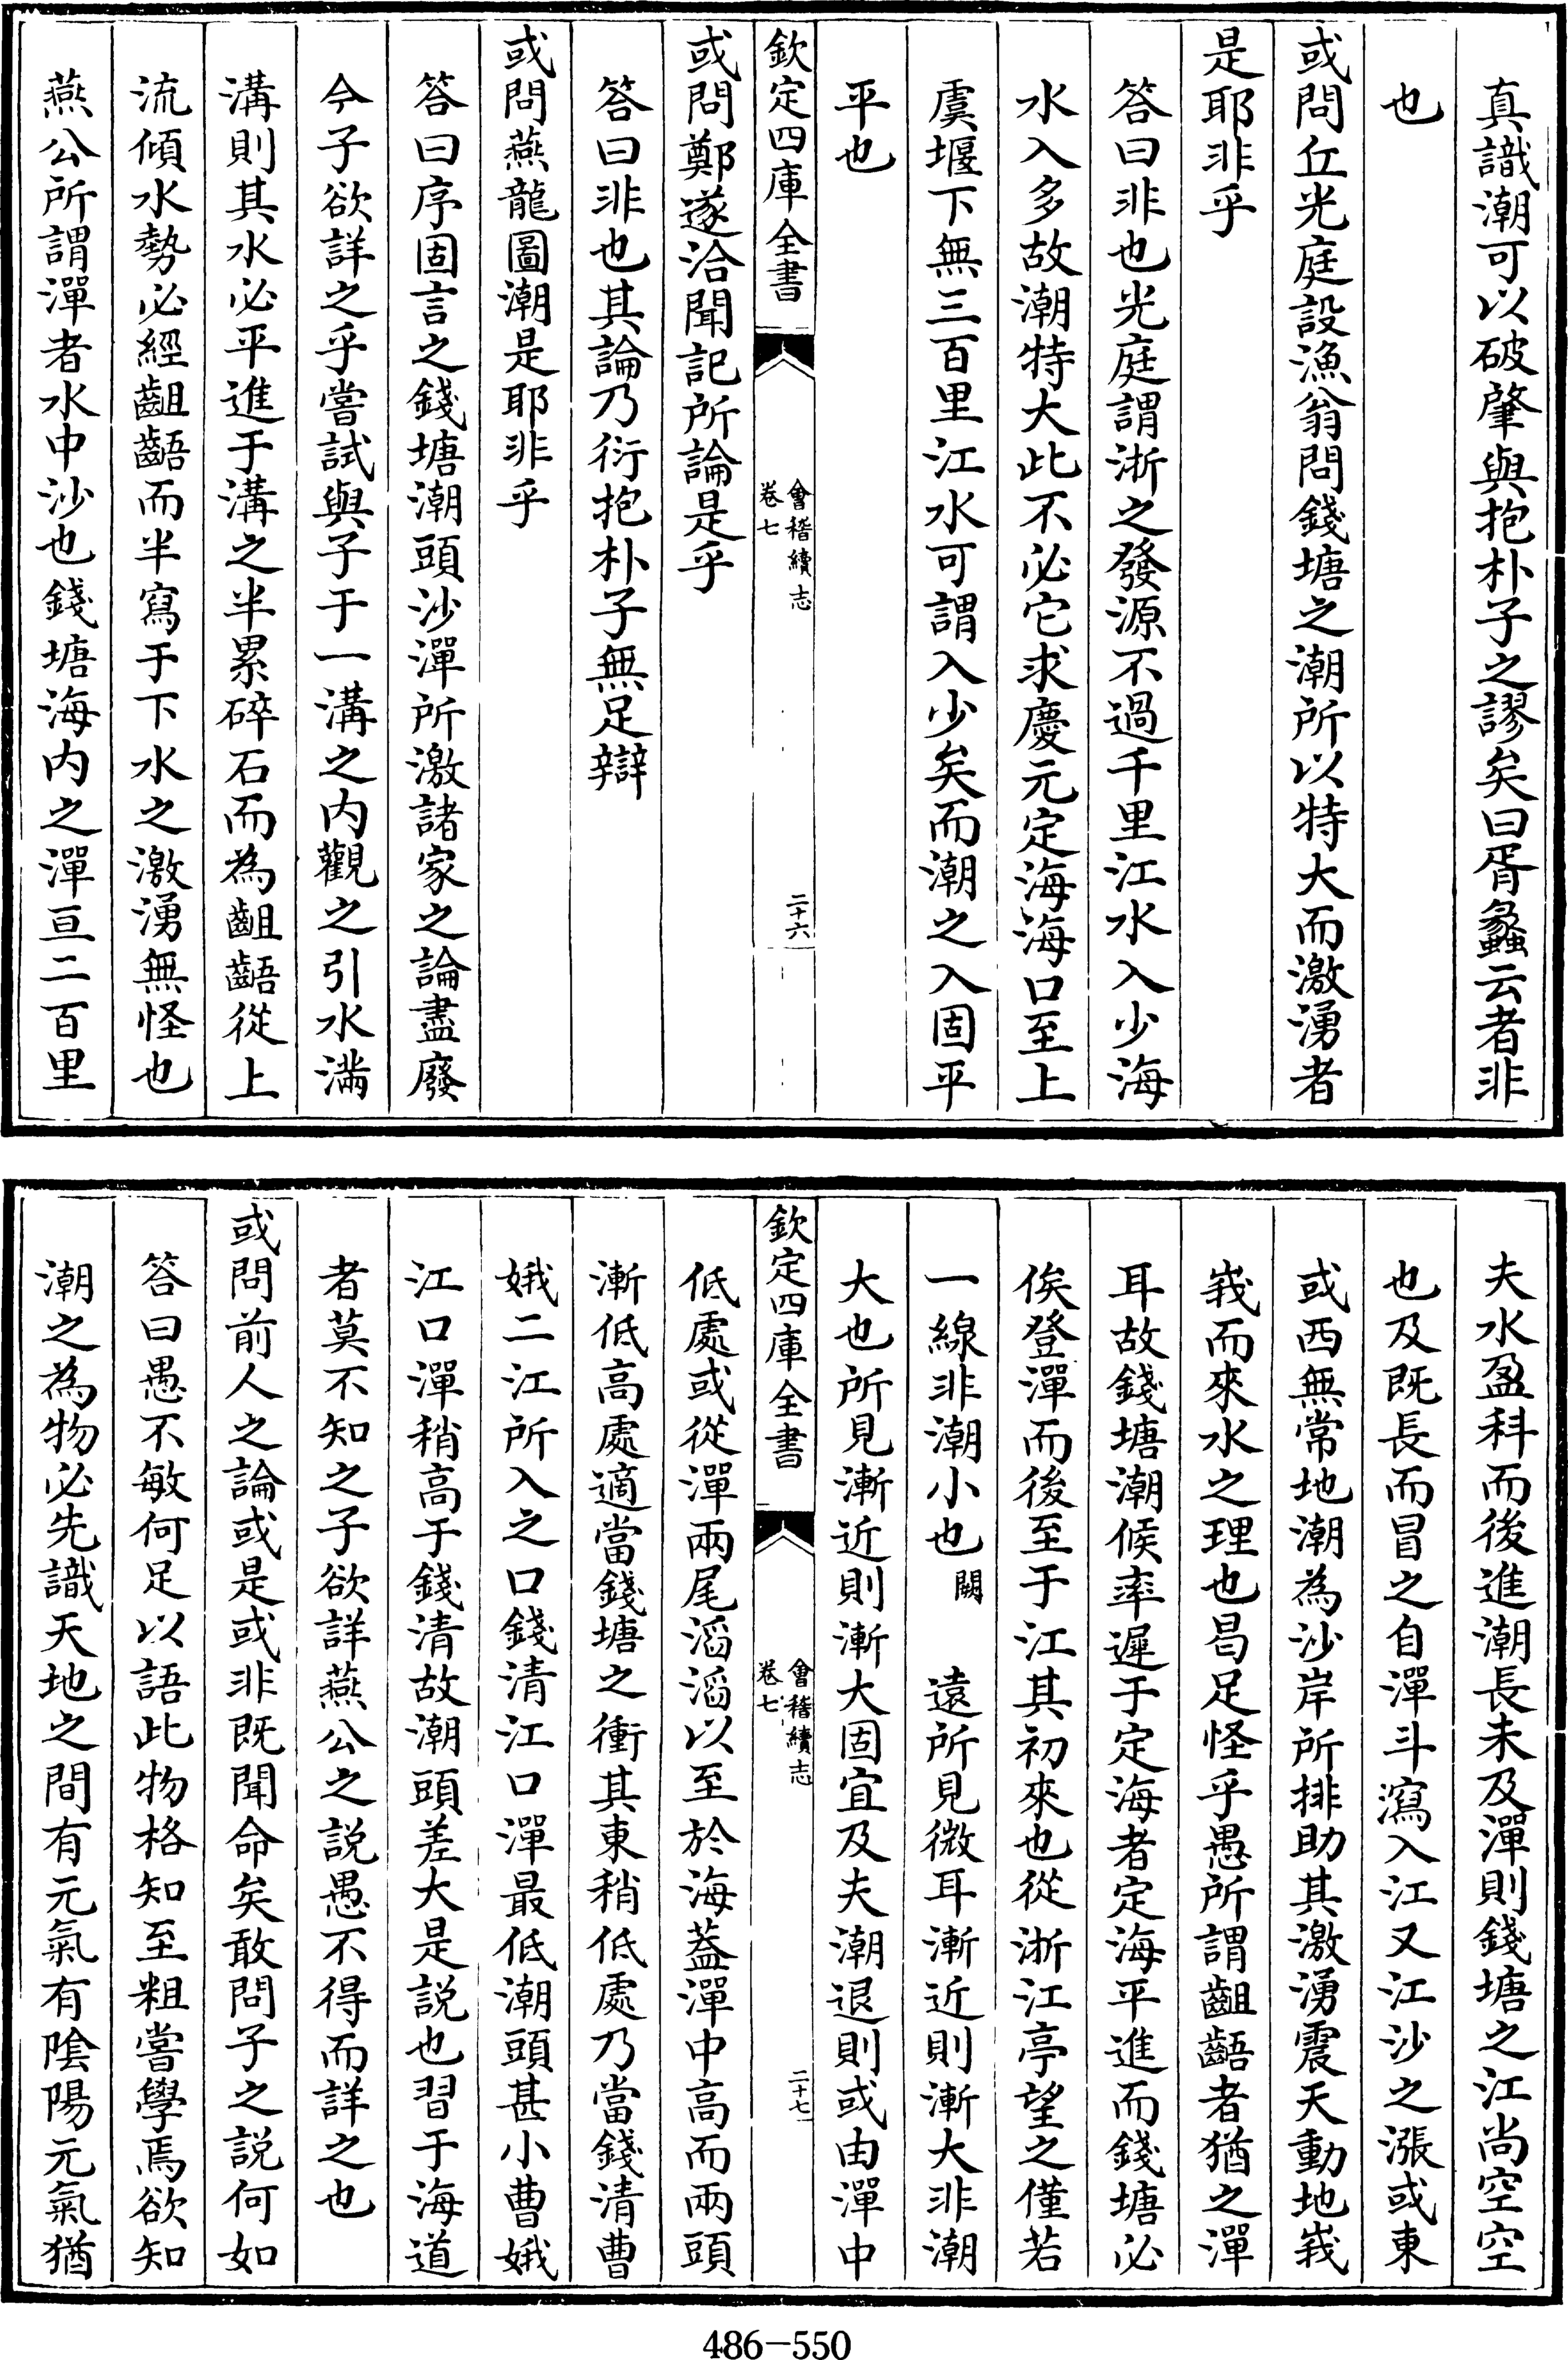 真識潮可以破肇與抱朴子之謬矣曰胥蠡云者非
也
或問丘光庭設漁翁問錢塘之潮所以特大而激湧者
是耶非乎
答曰非也光庭謂浙之發源不過千里江水入少海
水入多故潮特大此不必它求慶元定海海口至上
虞堰下無三百里江水可謂入少矣而潮之入固平
平也
欽定四庫全書
會稽續志
卷七
二十六
或問鄭遂洽聞記所論是乎
答曰非也其論乃衍抱朴子無足辯
或問燕龍圖潮是耶非乎
答曰序固言之錢塘潮頭沙潬所激諸家之論盡廢
今子欲詳之乎嘗試與子于一溝之内觀之引水滿
溝則其水必平進于溝之半累碎石而為齟齬從上
流傾水勢必經齟齬而半寫于下水之激湧無怪也
燕公所謂潬者水中沙也錢塘海内之潬亘二百里
夫水盈科而後進潮長未及潬則錢塘之江尚空空
也及既長而冒之自潬斗瀉入江又江沙之漲或東
或西無常地潮為沙岸所排助其激湧震天動地峩
峩而來水之理也曷足怪乎愚所謂齟齬者猶之潬
耳故錢塘潮候率遲于定海者定海平進而錢塘必
俟登潬而後至于江其初來也從浙江亭望之僅若
一線非潮小也闕 遠所見微耳漸近則漸大非潮
大也所見漸近則漸大固宜及夫潮退則或由潬中
欽定四庫全書
會稽續志
卷七
二十七
低處或從潬兩尾滔滔以至於海葢潬中高而兩頭
漸低高處適當錢塘之衝其東稍低處乃當錢清曹
娥二江所入之口錢清江口潬最低潮頭甚小曹娥
江口潬稍高于錢清故潮頭差大是説也習于海道
者莫不知之子欲詳燕公之説愚不得而詳之也
或問前人之論或是或非既聞命矣敢問子之説何如
答曰愚不敏何足以語此物格知至粗嘗學焉欲知
潮之為物必先識天地之間有元氣有陰陽元氣猶
486-550